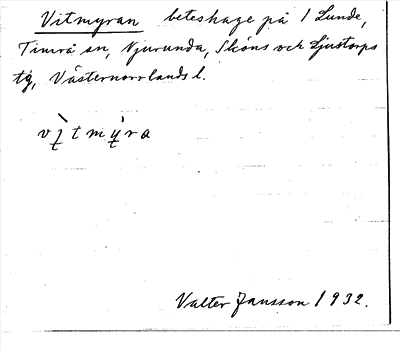 Vitmyran beteshage på 1 Lunde,
Timrå sn, Njurunda, Sköns och Ljustorps
tg, Västernorrlands l.
vì̖tmy̖̍ra
Valter Jansson 1932.